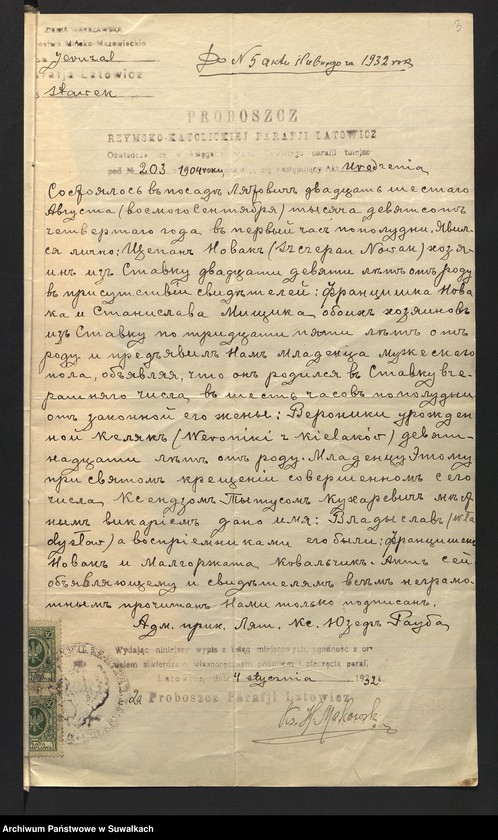 3
ZIEMIA WARSZAWSKA
Mińsko-Mazowieckie
Jeruzal
Parafja Latowicz
Stawek
Do N 5 aktu ślubnego za 1932 rok
PROBOSZCZ
RZYMSKO-KATOLICKIEJ PARAFJI LATOWICZ
Oświadcza że w księgach parafji tutejszej
pod № 203 1904 roku następujący Akt Urodzenia
Состоялось въ посадѣ Лятовичъ двадцать шестаго
Августа (восмого Сентября) тысяча девятсотъ
четвертаго года въ первый часъ пополудни. Явил-
ся лично: Щепанъ Новакъ (Szczepan Nowak) хозя-
инъ изъ Ставку двадцати девяти лѣтъ отъ роду
въ присутствіи свидѣтелей: Францишка Нова-
ка и Станислава Мищика, обоихъ хозяиновъ
изъ Ставку по тридцати пяти лѣтъ отъ
роду и предъявилъ Намъ Младенца мужескаго
пола, объявляя, что онъ родился въ Ставку вче-
рашняго числа въ шесть часовъ пополудни
отъ законной его жены: Вероники урожден-
ной Келякъ (Weroniki z Kielaków) девят-
надцати лѣтъ отъ роду. Младенцу Этому
при святомъ крещеніи совершенномъ сего
числа Ксендзомъ Тытусомъ Кухаревичъ мѣст-
нымъ викаріемъ дано имя: Владыславъ (Wła-
dysław) а воспріемниками его были: Францишекъ
Новакъ и Малгоржата Ковальчикъ. Актъ сей
объявляющему и свидѣтелямъ всѣмъ неграмо-
тнымъ прочитанъ Нами только подписанъ.
Адм. прих. Лят. Кс. Юзефъ Гауба
Wydając niniejszy wypis z ksiąg miejscowych, zgodność z ory-
ginałem stwierdzam własnoręcznym podpisem i pieczęcią paraf.
Latowicz, dnia 4 stycznia 1932 r.
za Proboszcz Parafji Latowicz
Ks. H. Makowski
Archiwum Państwowe w Suwałkach